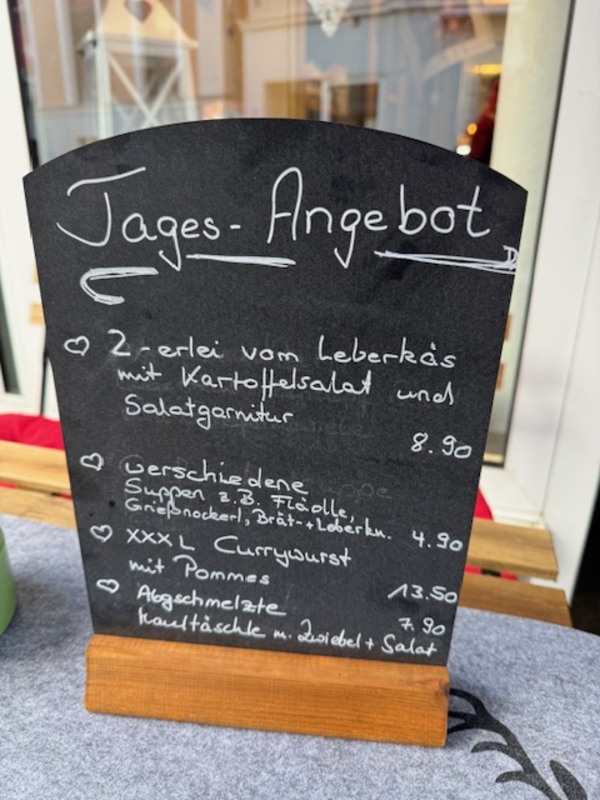 Tages-Angebot
2-erlei vom Leberkäs
mit Kartoffelsalat und
Salatgarnitur
8.90
verschiedene
Suppen z.B. Flädle,
Grießnockerl, Brät-+Leberkn. 4.90
XXXL Currywurst
mit Pommes 13.50
Abgschmelzte 7.90
Maultäschle m. Zwiebel + Salat